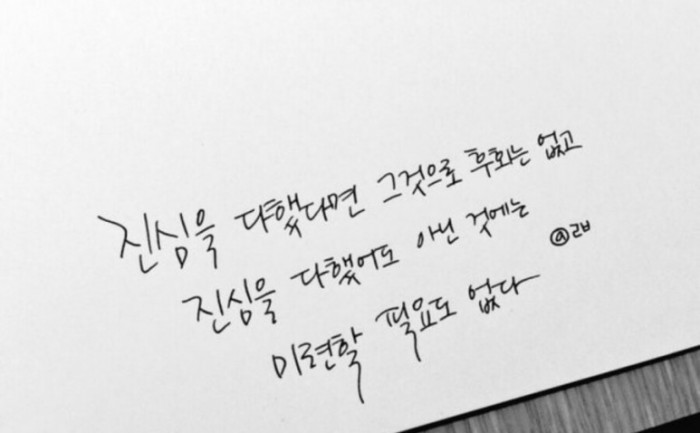 진심을 다했다면 그것으로 후회는 없고
진심을 다했어도 아닌 것에는
미련할 필요도 없다